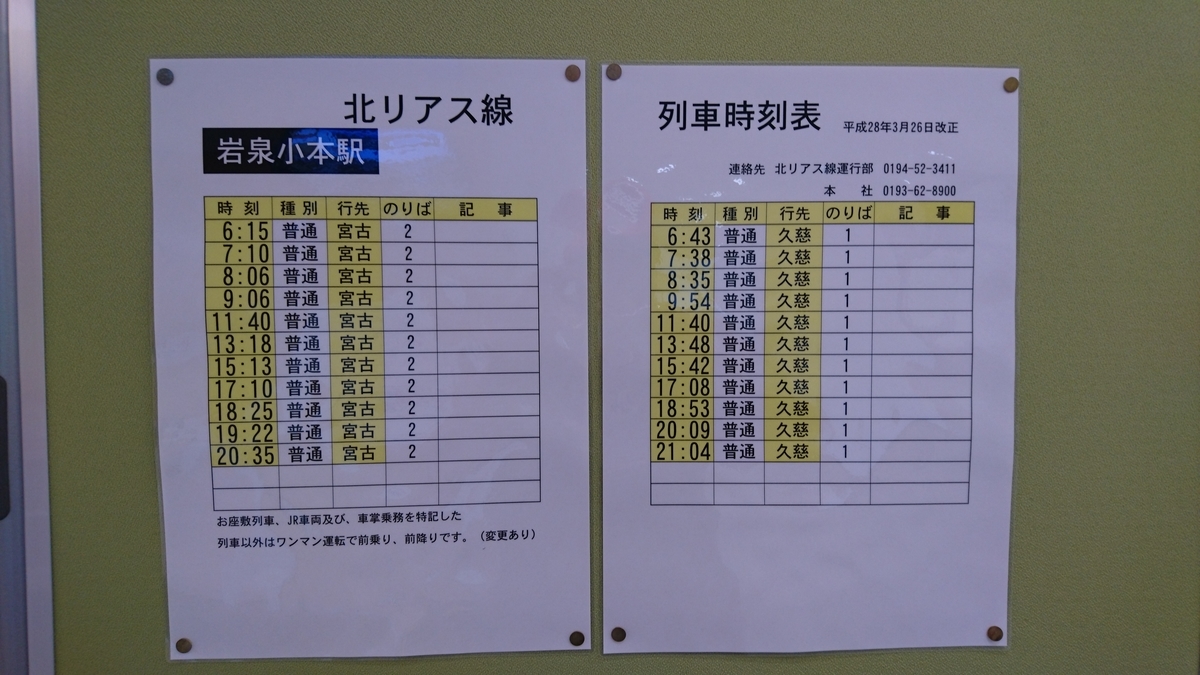 北リアス線
岩泉小本駅
時 刻 種 別 行先 のりば 記 事
6:15 普通 宮古 2
7:10 普通 宮古 2
8:06 普通 宮古 2
9:06 普通 宮古 2
11:40 普通 宮古 2
13:18 普通 宮古 2
15:13 普通 宮古 2
17:10 普通 宮古 2
18:25 普通 宮古 2
19:22 普通 宮古 2
20:35 普通 宮古 2
お座敷列車、JR車両及び、車掌乗務を特記した
列車以外はワンマン運転で前乗り、前降りです。（変更あり）
列車時刻表 平成28年3月26日改正
連絡先 北リアス線運行部 0194-52-3411
本 社 0193-62-8900
時 刻 種 別 行先 のりば 記 事
6:43 普通 久慈 1
7:38 普通 久慈 1
8:35 普通 久慈 1
9:54 普通 久慈 1
11:40 普通 久慈 1
13:48 普通 久慈 1
15:42 普通 久慈 1
17:08 普通 久慈 1
18:53 普通 久慈 1
20:09 普通 久慈 1
21:04 普通 久慈 1